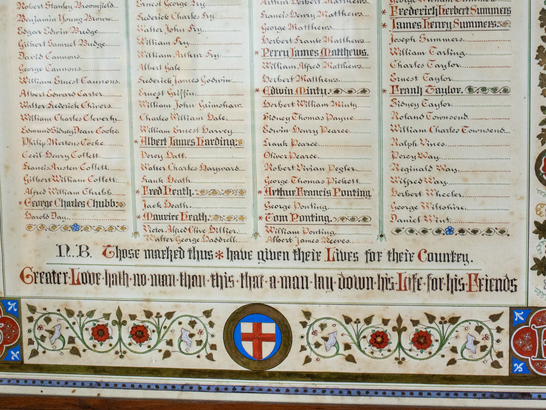 Robert Stanley Broomfield
Benjamin Young Brown
Edgar Edwin Budge
Gilbert Samuel Budge
David Cannons
George Cannons
William Ernest Cannons
Albert Edward Carter
Walter Frederick Chivers
William Charles Cleverly
Edmund Sidney Dean Cooke
Philip Mertens Cooke
Cecil Henry Collett
Francis Austen Collett
Gilbert William Collett
Alfred William Chubb
* George Charles Chubb
Harold Day
Ernest George Fry
Frederick Charles Fry
Walter John Fry
William Fry
William Arthur Fry
Albert Gale
Frederick James Godwin
Ernest Griffin
William John Gainshaw
Charles William Hale
William Ernest Harvey
* Albert James Harding
Percy Hatt
Walter Charles Hayward
Frank Heath
* Fred Heath
Jack Heath
* Maurice Heath
Walter George Haddrell
Arthur Herbert Matthews
Francis Henry Matthews
George Matthews
Herbert Frank Matthews
* Percy James Matthews
William Alfred Matthews
Herbert Matthews
* Edwin Minty
Herbert William Minty
Sidney Thomas Payne
Edwin Henry Pearce
Frank Pearce
Oliver Pearce
Robert Vivian Pegler
George Thomas Pickett
* Arthur Francis Ponting
George Ponting
* Tom Ponting
William Ponting
Albert James Reeves
* Frederick Herbert Summers
* James Henry Summers
Joseph Summers
William Tarling
Charles Taylor
Ernest Taylor
* Frank Taylor
Sidney Taylor
Roland Townsend
William Charles Townsend
Ralph Vines
Percy Way
Reginald Way
Wilfred Way
Herbert Wheeler
George Wiltshire
Daniel Wint
N.B. Those marked thus * have given their Lives for their Country.
Greater Love hath no man than this that a man lay down his Life for his Friends